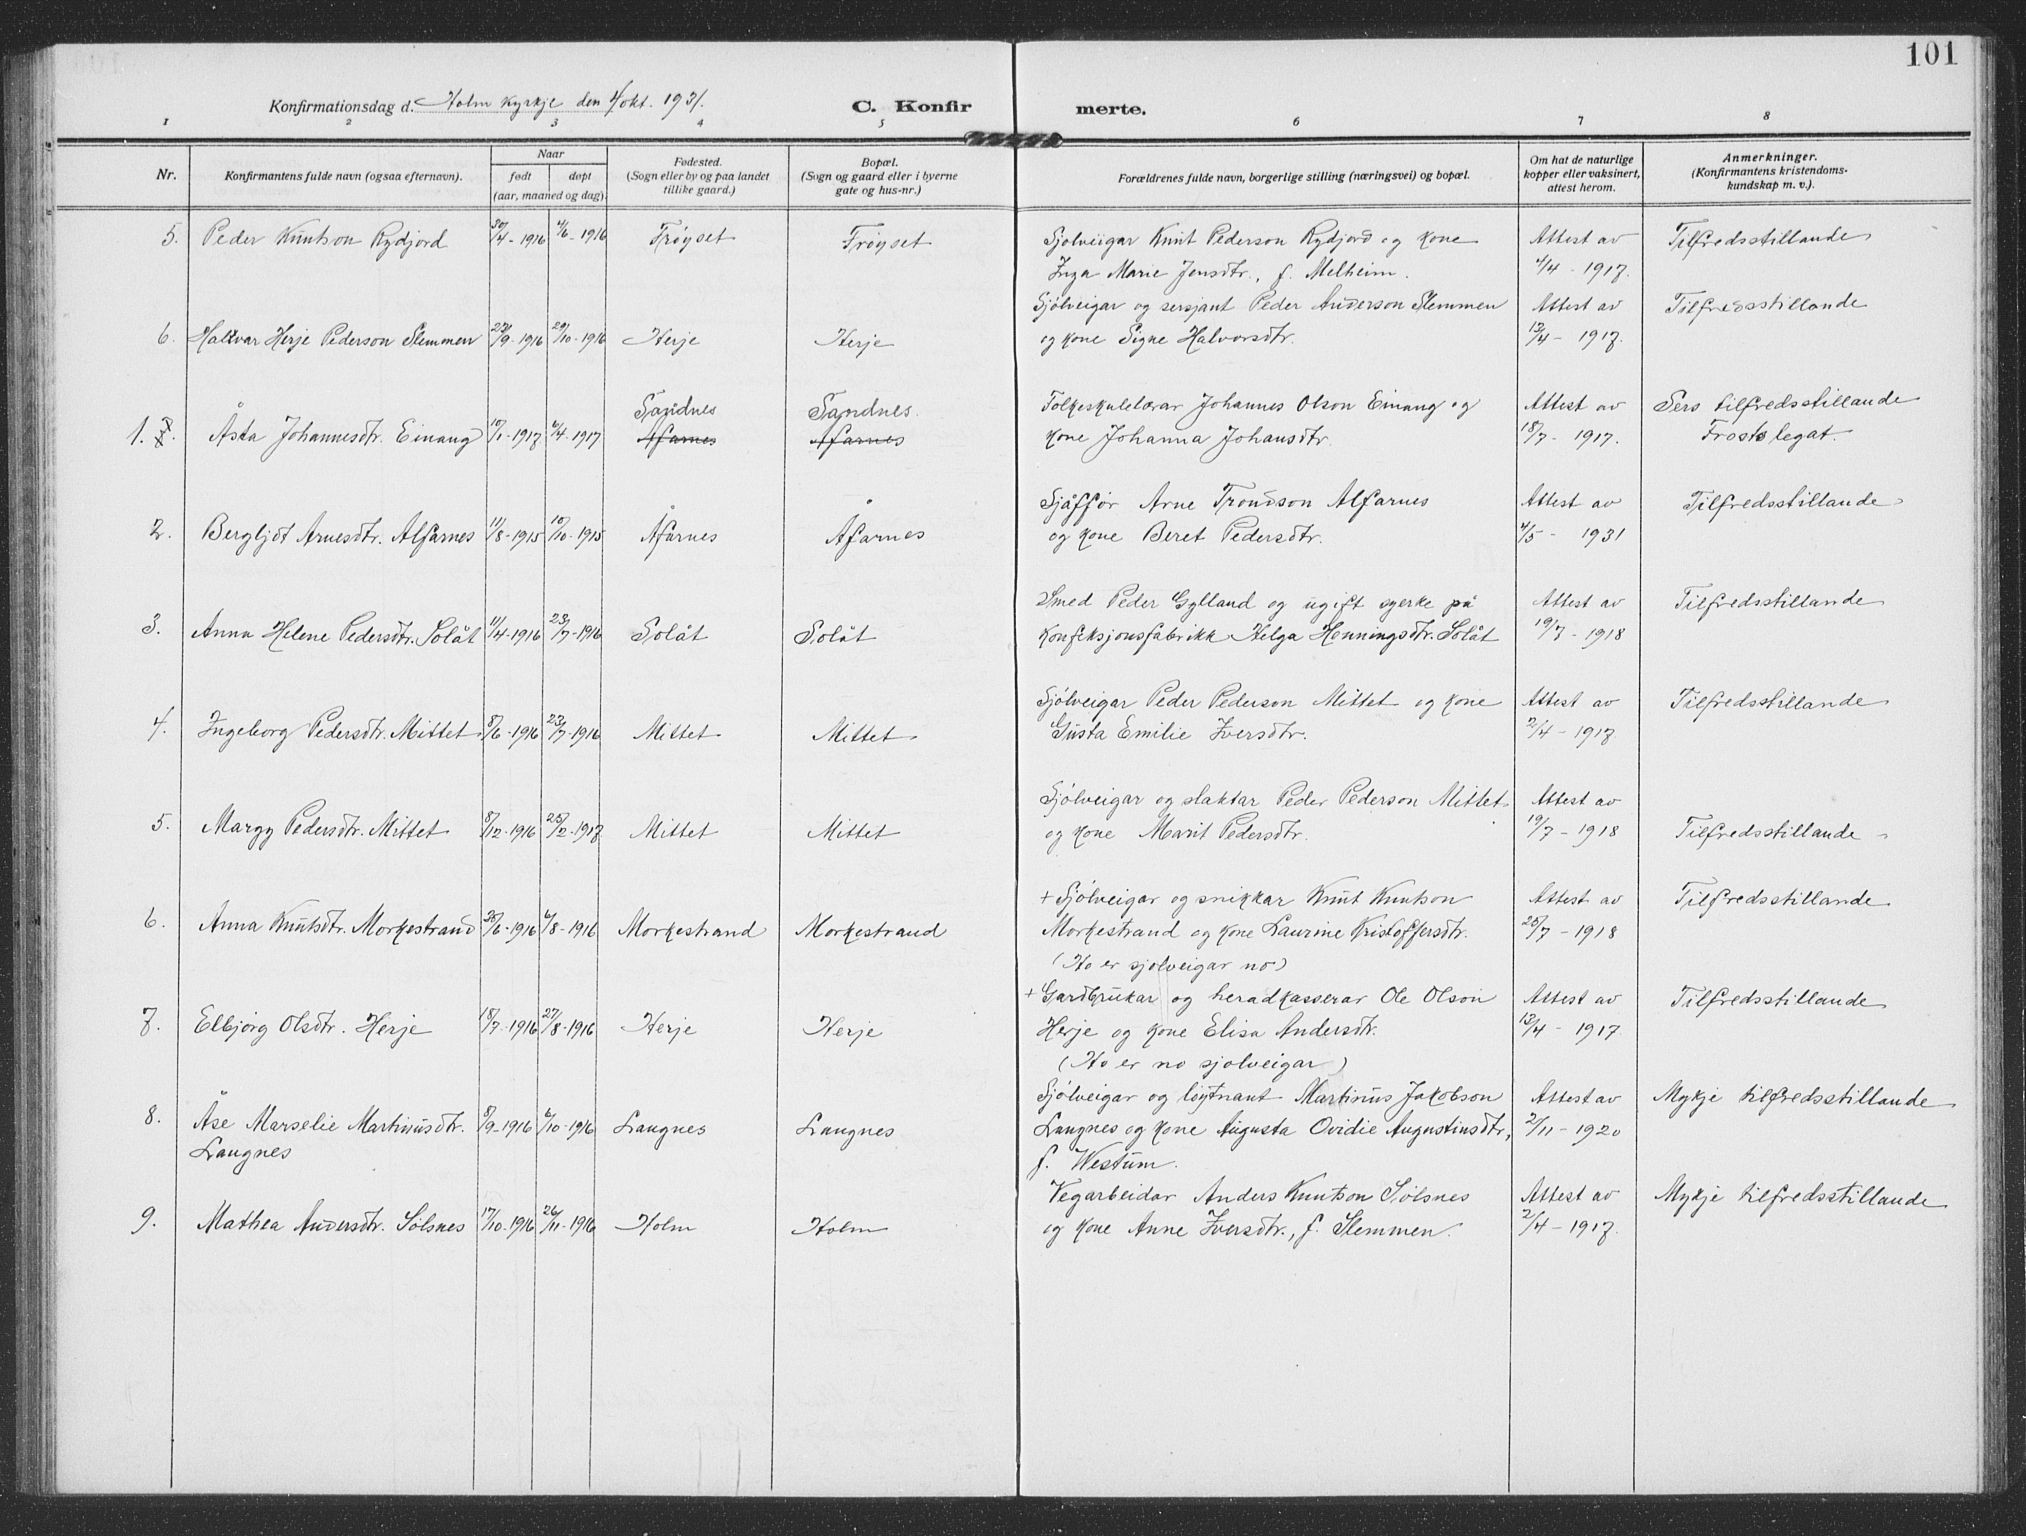 101
Konfirmationsdag d. Holm kyrkje den 4/okt. 1931. C. Konfirmerte.
1 2 3 4 5 6 7 8
Nr.
Konfirmantens fulde navn (ogsaa efternavn).
Naar
født
døpt
(aar, maaned og dag)
Fødested.
(Sogn eller by og paa landet
tillike gaard.)
Bopæl.
(Sogn og gaard eller i byerne
gate og hus-nr.)
Forældrenes fulde navn, borgerlige stilling (næringsvei) og bopæl.
Om hat de naturlige
kopper eller vaksinert,
attest herom.
Anmerkninger.
(Konfirmantens kristendoms-
kundskap m. v.).
5. Peder Knutson Rydjord 30/4-1916 4/6-1916 Trøyset Trøyset Sjølveigar Knut Pederson Rydjord og kone Attest av Tilfredsstillande
Inga Marie Jensdtr., f. Melheim. 4/4-1917.
6. Halvar Herje Pederson Slemmen 27/9-1916 29/10-1916 Herje Herje Sjølveigar og sersjant Peder Anderson Slemmen Attest av Tilfredsstillande
og kone Signe Halvorsdtr. 13/4-1917.
1. 7. Åsta Johannesdtr. Einang 10/1-1917 6/4-1917 Sandnes Afarnes Sandnes. Afarnes Folkeskulelærar Johannes Olson Einang og Attest av Sers tilfredsstillande
kone Johanna Johansdtr. 18/7-1917. Frosts legat.
2. Bergljot Arnesdtr. Alfarnes 11/8-1915 10/10-1915 Åfarnes Åfarnes Sjåffør Arne Trondson Alfarnes Attest av Tilfredsstillande
og kone Beret Pedersdtr. 4/5-1931
3. Anna Helene Pedersdtr. Solåt 11/4-1916 23/7-1916 Solåt Solåt Smed Peder Gylland og ugift syerke på Attest av Tilfredsstillande
konfeksjonsfabrikk Helga Henningsdtr. Solåt 19/7-1918
4. Ingeborg Pedersdtr. Mittet 8/6-1916 23/7-1916 Mittet Mittet Sjølveigar Peder Pederson Mittet og kone Attest av Tilfredsstillande
Gusta Emilie Iversdtr. 2/4-1917
5. Margy Pedersdtr. Mittet 8/12-1916 25/2-1917 Mittet Mittet Sjølveigar og slaktar Peder Pederson Mittet Attest av
og kone Marit Pedersdtr. 19/7-1918 Tilfredsstillande
6. Anna Knutsdtr. Morkestrand 26/6-1916 6/8-1916 Morkestrand Morkestrand + Sjølveigar og snikkar Knut Knutson Attest av Tilfredsstillande
Morkestrand og kone Laurine Kristoffersdtr. 25/7-1918
(Ho er sjølveigar no)
7. Elbjørg Olsdtr. Herje 18/7-1916 27/8-1916 Herje Herje + Gardbrukar og heradkasserar Ole Olson Attest av Tilfredsstillande
Herje og kone Elisa Andersdtr. 13/4-1917.
(Ho er no sjølveigar)
8. Åse Marselie Martinusdtr. 8/9-1916 6/10-1916 Langnes Langnes Sjølveigar og løytnant Martinus Jakobson Attest av Mykje tilfredsstillande
Langnes
Langnes og kone Augusta Ovidie Augustinsdtr, 2/11-1920
f. Westum.
9. Mathea Andersdtr. Sølsnes 17/10-1916 26/11-1916 Holm Holm Vegarbeidar Anders Knutson Sølsnes Attest av Mykje tilfredsstillande
og kone Anne Iversdtr., f. Slemmen. 2/4-1917.